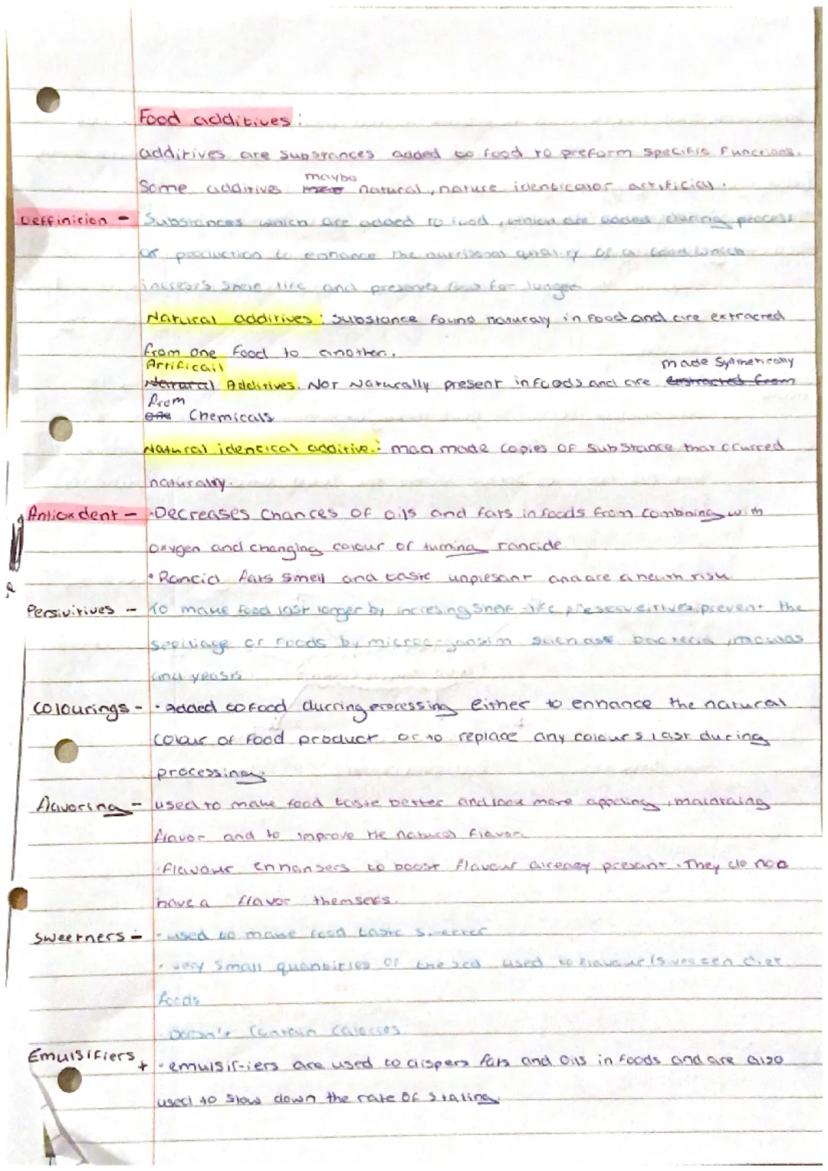 Food additives :
additives are substances added to food to preform specific functions.
maybe
Some additives natural, nature identical or artificial.
Deffinition - Substances which are added to food, which are added during process
or production to enhance the nutritional quality of a food which
increas's shelf life and preserves food for longer
Natural additives : Substance found naturaly in food and are extracted
from one food to another.
Artificail made Synthetically
Natural Additives. Not Naturally present in foods and are extracted from
from
one Chemicals
Natural identical additive : man made copies of substance that ocurred
naturally.
Antioxdent - ·Decreases Chances of oils and fats in foods from combining with
oxygen and changing colour or turning rancide
·Rancid fats smell and taste unplesant and are a health risk
Persivitives - To make food last longer by incresing shelf-life prevent the
of foods by such as bacteria, moulds
and yeasts
Colourings - ·added to food durring processing either to enhance the natural
colour of food product or to replace any colours last during
processing
flavoring - used to make food taste better and look more appealing, maintaing
flavor and to improve the natural flavor
·flavour enhansers to boost flavour already present. They do not
have a flavor themselfs.
Sweetners - ·used to make food taste sweeter
·very small quantities of used to flavour/sweeten diet
foods
·Doesn't contain calories
Emulsifiers + ·emulsifiers are used to dispers fats and oils in foods and are also
used to slow down the rate of staling